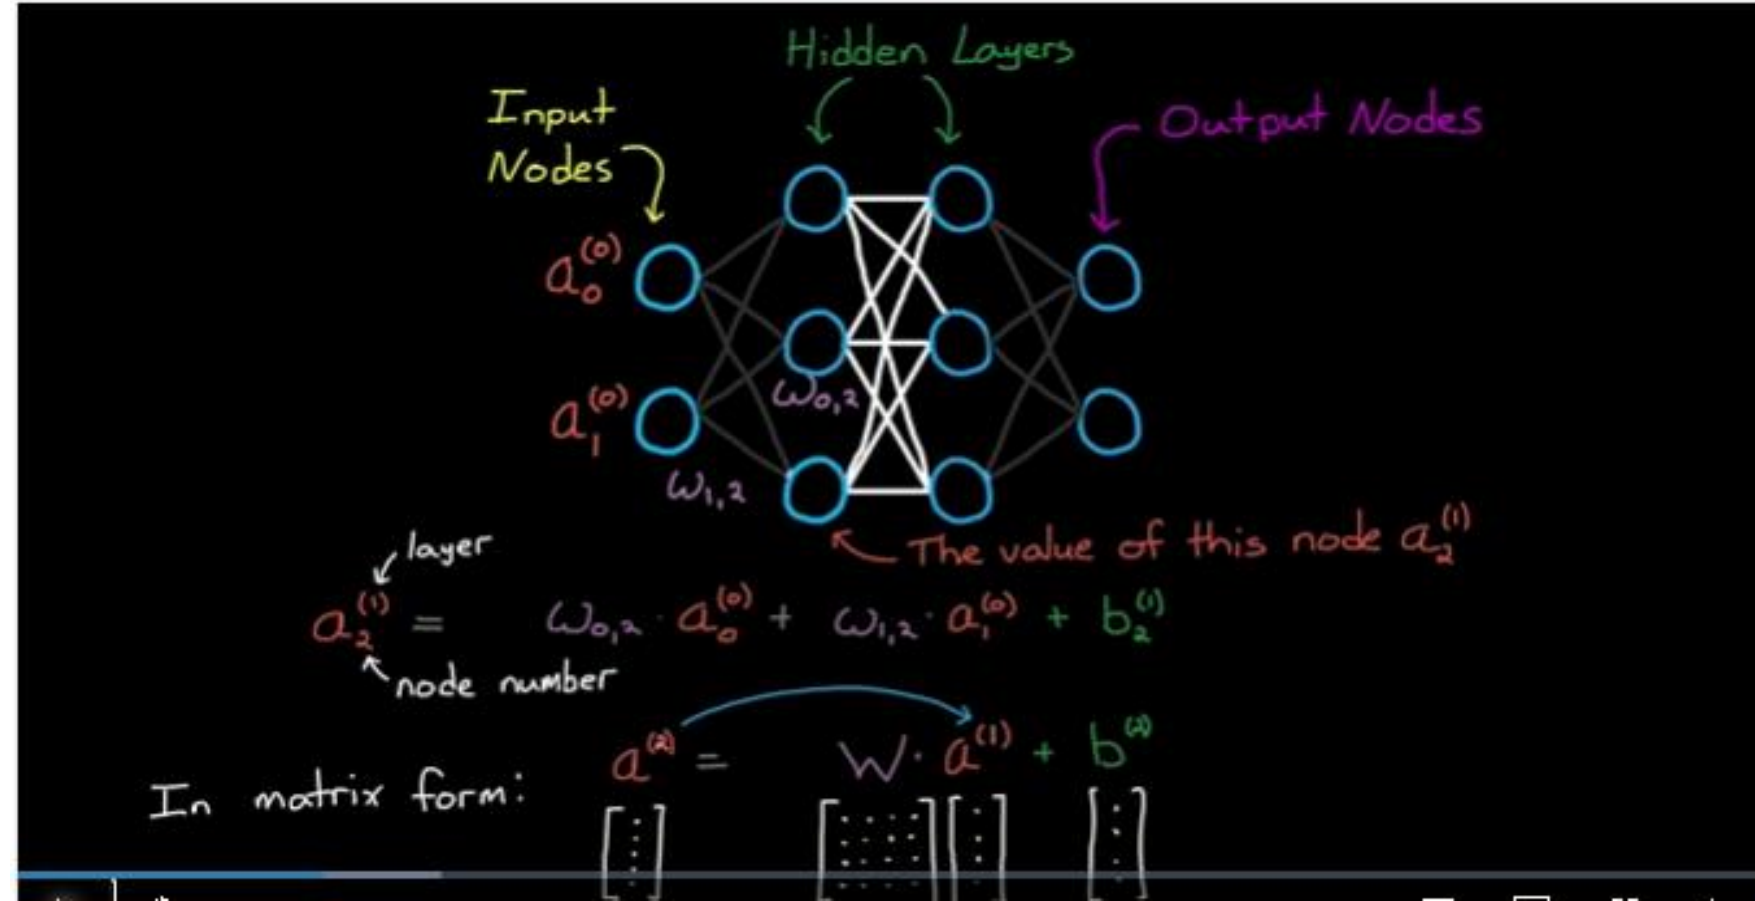 Hidden Layers
Input
Nodes
Output Nodes
a₀⁽⁰⁾
a₁⁽⁰⁾
ω₀,₂
ω₁,₂
The value of this node a₂⁽¹⁾
layer
a₂⁽¹⁾ = ω₀,₂ · a₀⁽⁰⁾ + ω₁,₂ · a₁⁽⁰⁾ + b₂⁽¹⁾
node number
a⁽²⁾ = W · a⁽¹⁾ + b⁽²⁾
In matrix form: